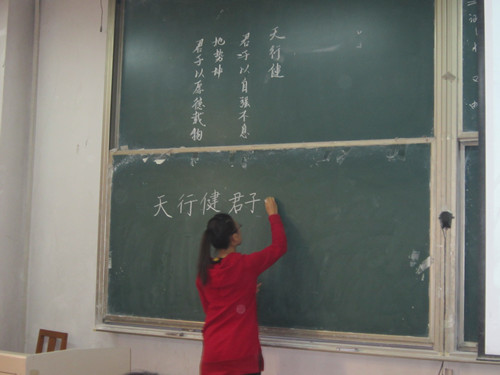 天行健
君子以自强不息
地势坤
君子以厚德载物
天行健 君子